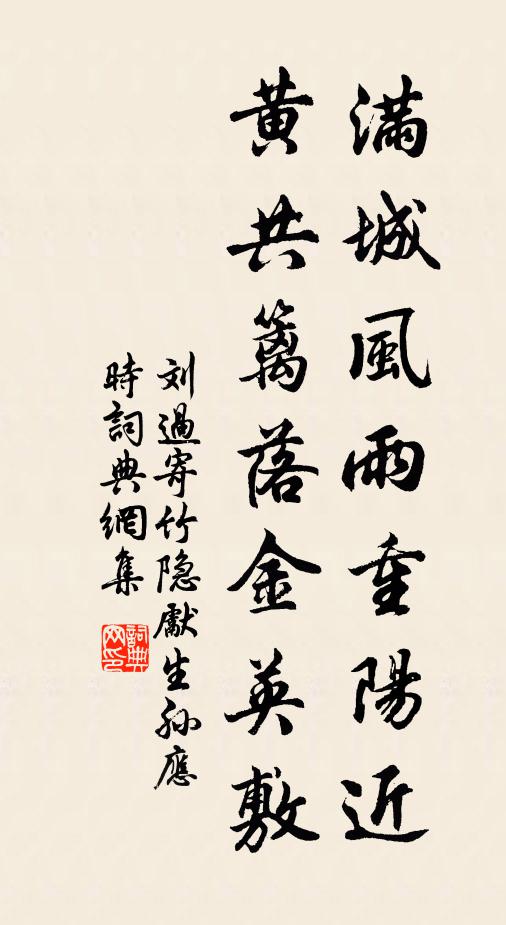 滿城風雨重陽近
黄共籬落金英敷
刘過寄竹隐獻生孙應
時詞典網集
詞典网印